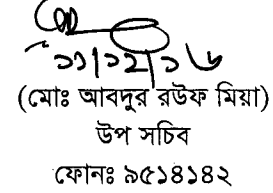 ১১|১২|১৬
(মোঃ আবদুর রউফ মিয়া)
উপ সচিব
ফোনঃ ৯৫১৪১৪২